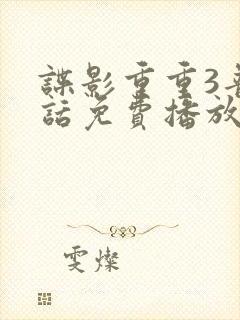 諜影重重3普
話免費播放
雯燦